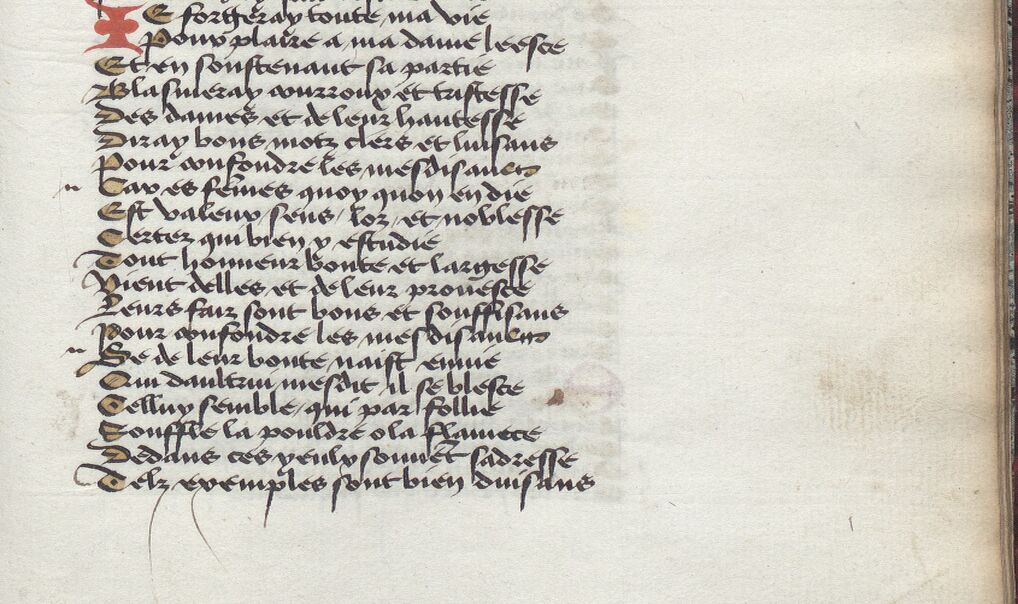 IE forgeray toute ma vie
Pour plaire a ma dame leesce
Et en soustenant sa partie
Blasmeray courroux et tristesse
Des dames et de leur haultesse
Diray bons motz clers et luisans
Pour confondre les mesdisans
Car es fẽmes quoy quon en die
Est valeur sens / loz et noblesse
Certez qui bien y estudie
Tout honneur bonte et largesse
Vient delles et de leur prouesce
Leurs faiz sont bons et souffisans
Pour confondre les mesdisans
Se de leur bonte naist enuie
Qui daultrui mesdit il se blesce
Celluy semble / qui par follie
Souffle la pouldre o la flamece
Dedans ces yeulx souuẽt sadresse
Telz exemples sont bien duisans